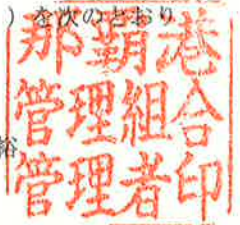 ）を次のとおり
那覇港
管理組合
管理者印
裕